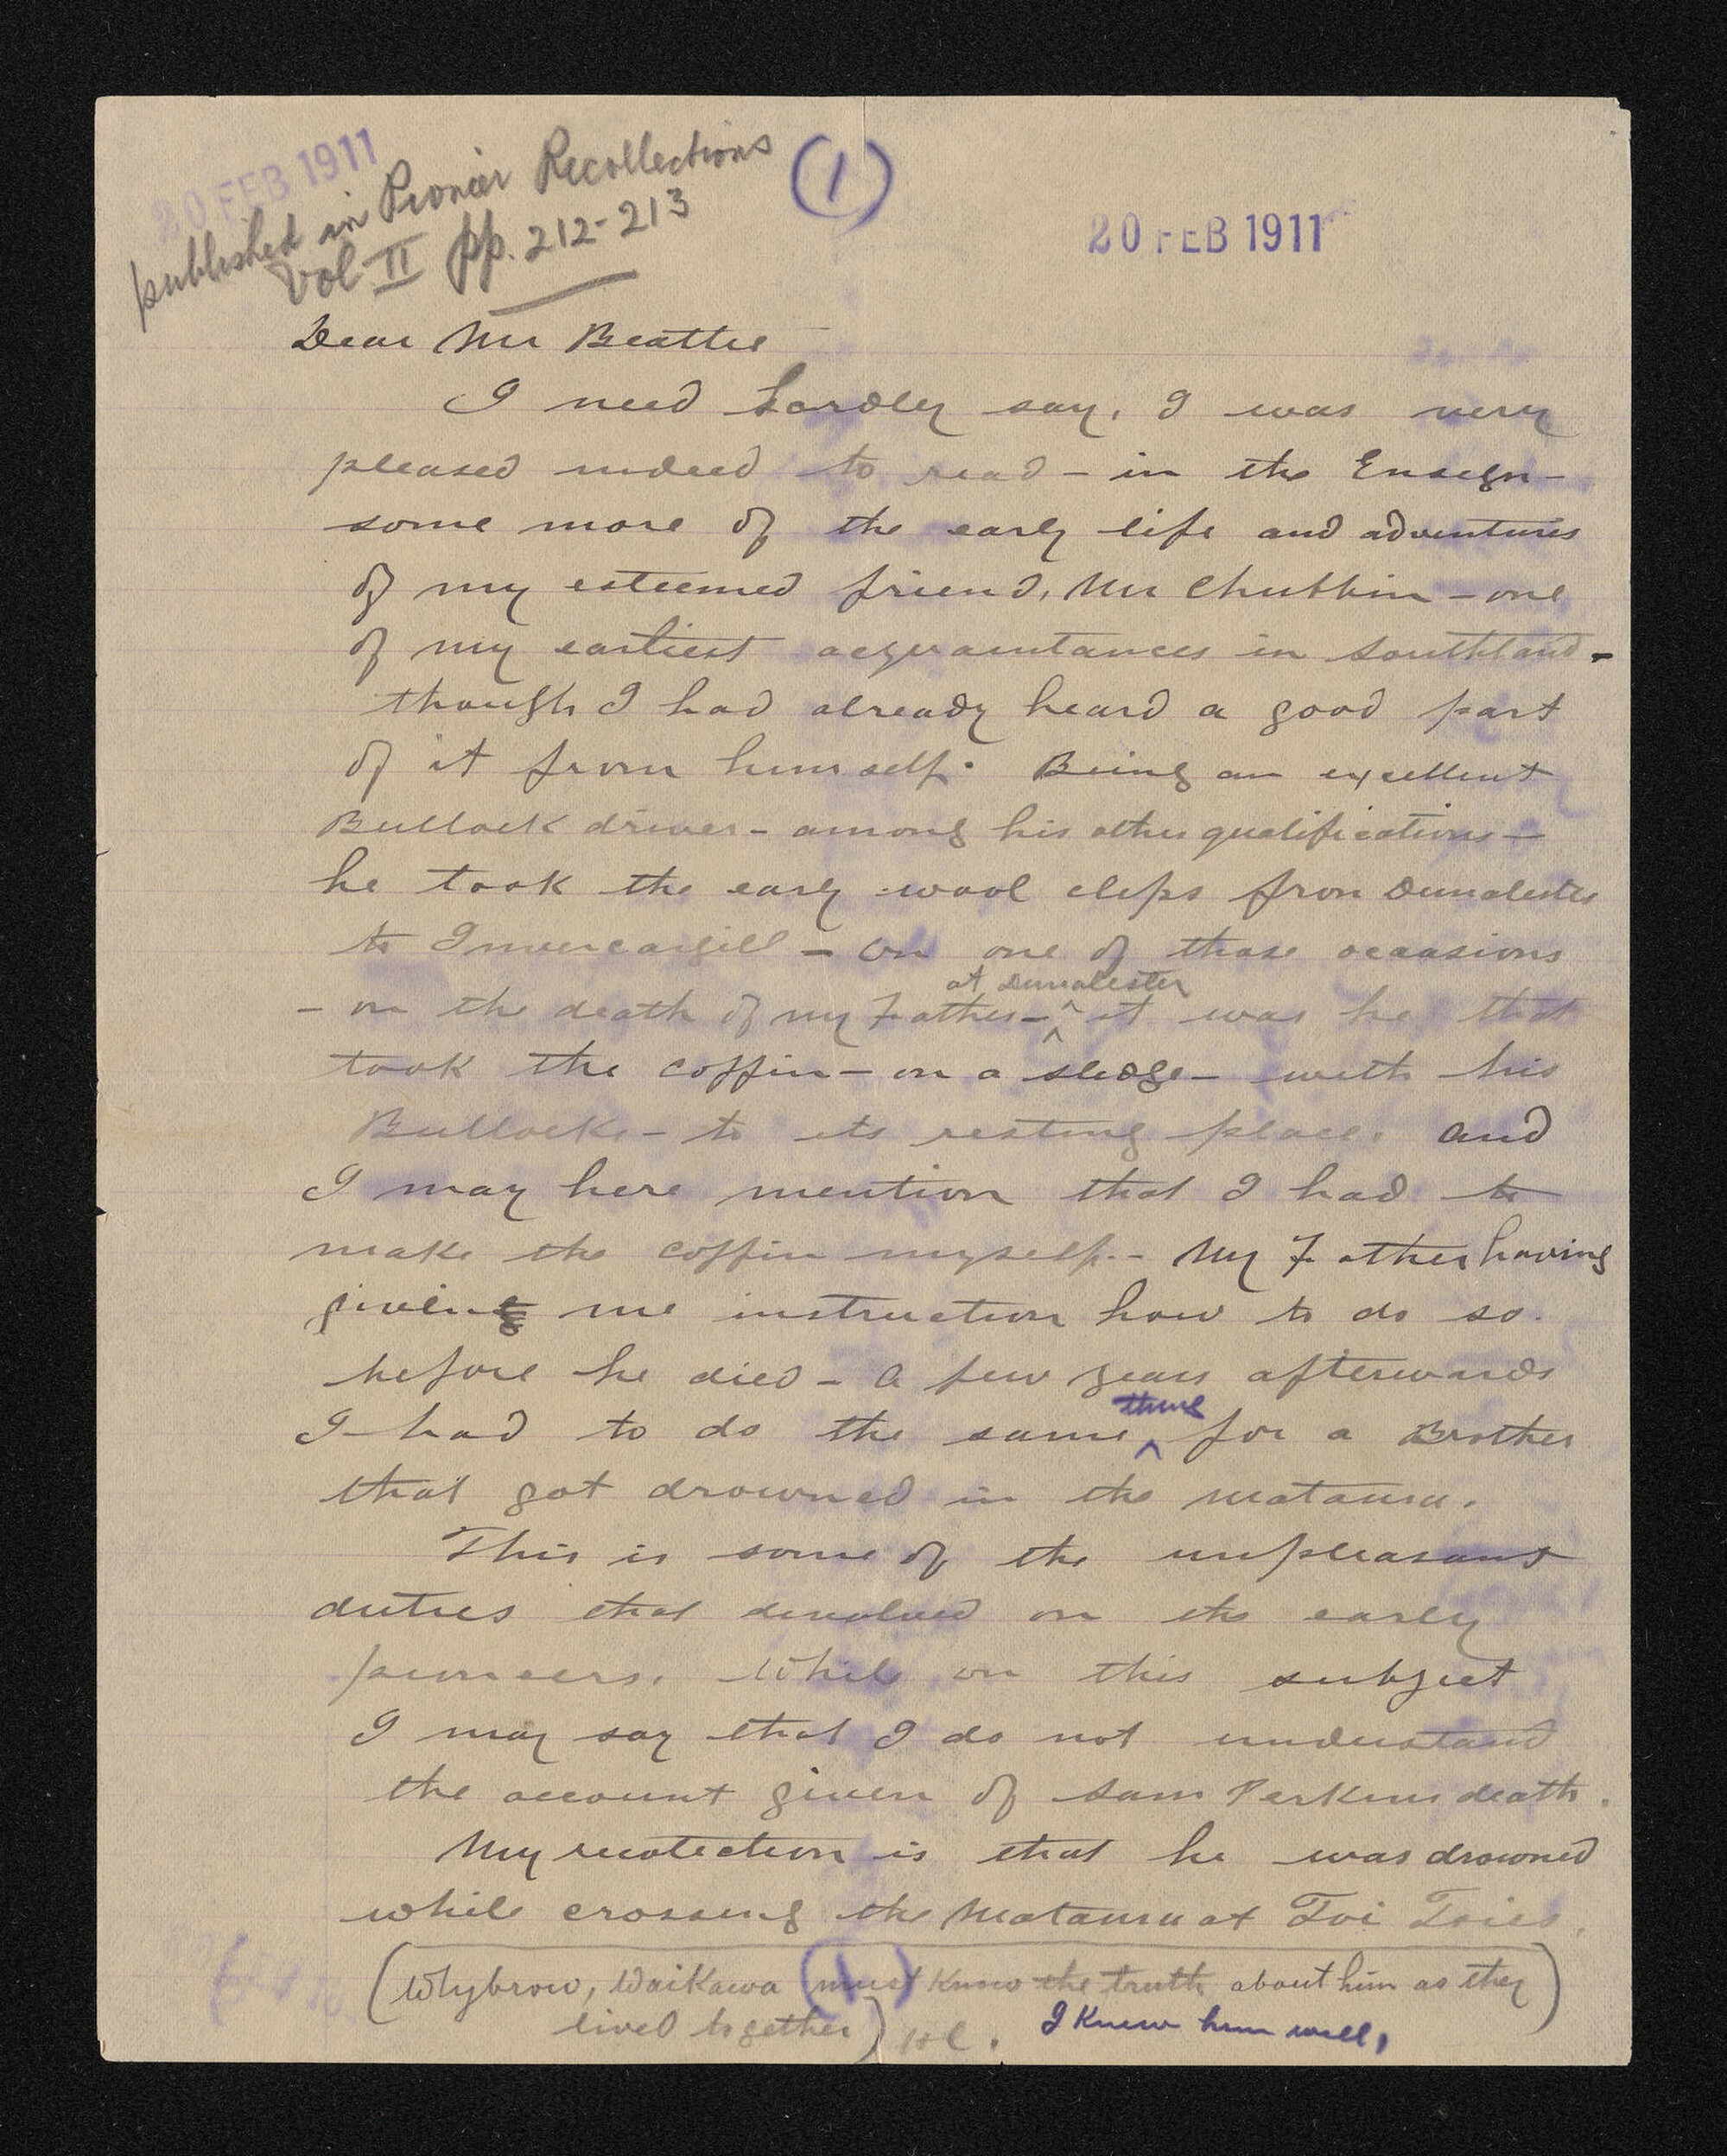 20 FEB 1911
published in Pioneer Recollections
Vol II pp. 212-213
(1)
20 FEB 1911
Dear Mr Beattie
I need hardly say, I was very
pleased indeed to read - in the Ensign -
some more of the early life and adventures
of my esteemed friend, Mr Chubbin - one
of my earliest acquaintances in Southland -
though I had already heard a good part
of it from himself. Being an excellent
Bullock driver - among his other qualifications -
he took the early wool clips from Dunalister
to Invercargill - On one of those occasions
at Dunalister
- on the death of my Father - it was he that
took the coffin - on a sledge - with his
Bullocks - to its resting place. And
I may here mention that I had to
make the coffin myself - My Father having
given me instruction how to do so.
before he died - A few years afterwards
thing
I had to do the same for a Brother
that got drowned in the Mataura.
This is some of the unpleasant
duties that devolved on the early
pioneers. While on this subject
I may say that I do not understand
the account given of Sam Perkins death.
My recolection is that he was drowned
while crossing the Mataura at Toi Toies.
(Whybrow, Waikawa must know the truth about him as they
lived together)
(1)
I knew him well,